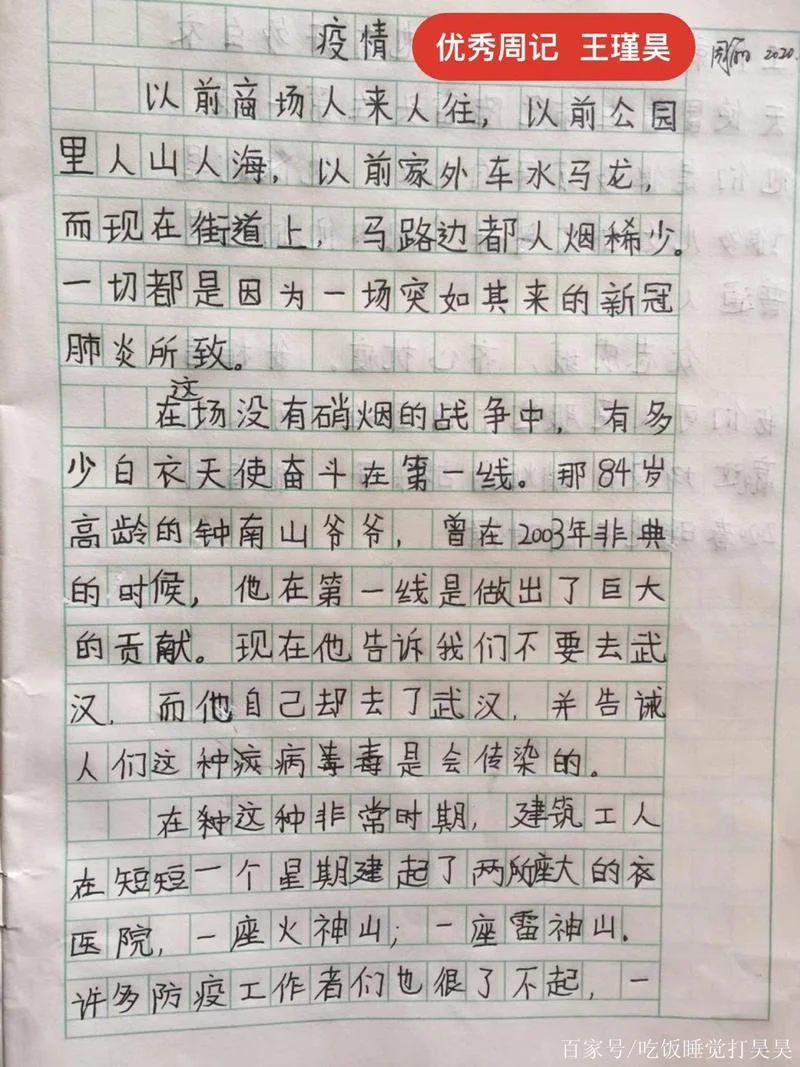 疫情
优秀周记 王瑾昊
2020.
以前商场人来人往，以前公园
里人山人海，以前家外车水马龙，
而现在街道上，马路边都人烟稀少。
一切都是因为一场突如其来的新冠
肺炎所致。
在这场没有硝烟的战争中，有多
少白衣天使奋斗在第一线。那84岁
高龄的钟南山爷爷，曾在2003年非典
的时候，他在第一线是做出了巨大
的贡献。现在他告诉我们不要去武
汉，而他自己却去了武汉，并告诫
人们这种疾病毒是会传染的。
在种这种非常时期，建筑工人
在短短一个星期建起了两所座大的
医院，一座火神山；一座雷神山.
许多防疫工作者们也很了不起，一
百家号/吃饭睡觉打昊昊